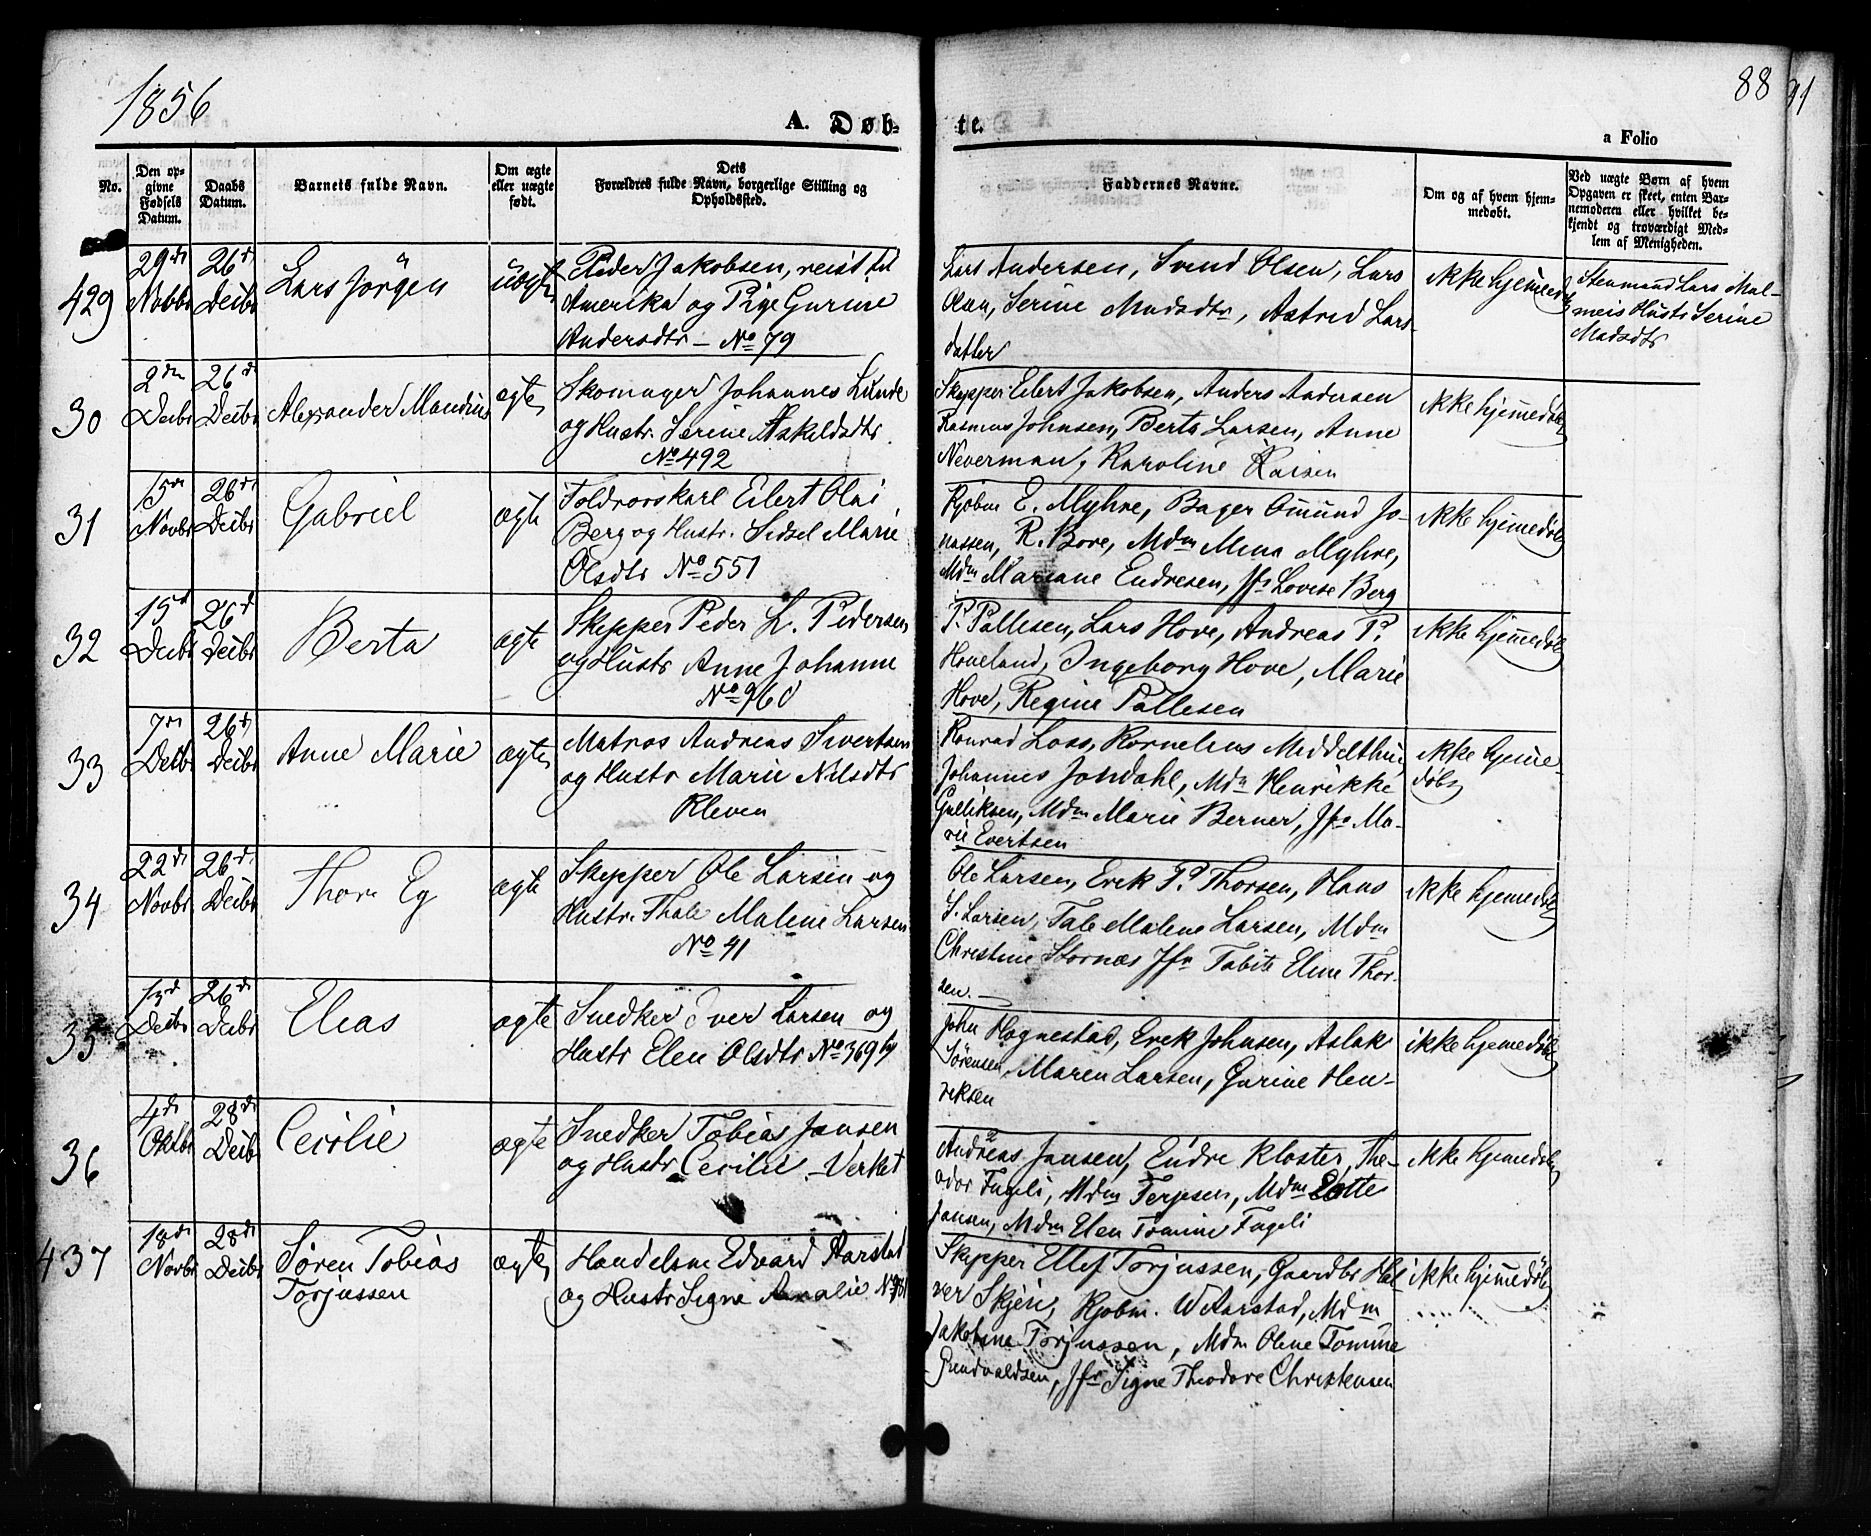 1856
88
91
A. Døb-
te.
a Folio
No.
Den op-
givne
Fødsels
Datum.
Daabs
Datum.
Barnets fulde Navn.
Om ægte
eller uægte
født.
Dets
Forældres fulde Navn, borgerlige Stilling og
Opholdssted.
Faddernes Navne.
Om og af hvem hjem-
medøbt.
Ved uægte Børn af hvem
Opgaven er skeet, enten Bar-
nemoderen eller hvilket be-
kjendt og troværdigt Med-
lem af Menigheden.
429
29de Novbr
26d Decbr
Lars Jörgen
uægte
Peder Jakobsen, reist til
Amerika og Pige Gurine
Andersdtr – No 79
Lars Andersen, Svend Olsen, Lars
Olsen, Serine Madsdtr, Astrid Lars-
datter
ikke hjemedøbt
Stenmand Lars Mal-
meis Hustr Serine
Madsdtr
30
2den Decbr
26d Decbr
Alexander Mandius
ægte
Skomager Johannes Lunde
og Hustr. Serine Askildsdtr.
No 492
Skipper Eilert Jakobsen, Anders Andersen
Rasmus Johnsen, Berta Larsen, Anne
Neverman, Karoline Kaisen
ikke hjemedøbt
31
15de Novbr
26de Decbr
Gabriel
ægte
Toldrorskarl Eilert Olai
Berg og Hustr. Sidsel Marie
Olsdtr No 551
Kjøbm E. Myhre, Bager Omund Jo-
nassen, R. Bore, Mdm Mina Myhre,
Mdm Mariane Endresen, Jfr Lovise Berg
ikke hjemedøbt
32
15d Decbr
26d Decbr
Berta
ægte
Skipper Peder L. Pedersen
og Hustr Anne Johanne
No 960
P. Pallesen, Lars Hove, Andreas P.
Hoveland, Ingeborg Hove, Marie
Hove, Regine Pallesen
ikke hjemedøbt
33
7de Decbr
26d Decbr
Anne Marie
ægte
Matros Andreas Sivertsen
og Hustr Marie Nilsdtr
Kleven
Konrad Loss, Kornelius Middelthun
Johannes Jondahl, Mdm Henrikke
Gulliksen, Mdm Marie Berner, Jfr Ma-
rie Evertsen
ikke hjeme-
døbt
34
22de Novbr
26de Decbr
Thora Eg
ægte
Skipper Ole Larsen og
Hustr. Thale Malene Larsen
No 41
Ole Larsen, Erik P. Thorsen, Hans
S. Larsen, Tale Malene Larsen, Mdm
Christine Stornæs Jfr Tabite Eline Thor-
sen. –
ikke hjemedøbt
35
13d Decbr
26de Decbr
Elias
ægte
Snedker Iver Larsen og
Hustr Elen Olsdtr No 369 b
John Hognestad, Erik Johnsen, Aslak
Sørensen, Maren Larsen, Gurine Hen-
riksen
ikke hjemedøbt
36
4de Oktbr
28de Decbr
Cecilie
ægte
Snedker Tobias Jansen
og Hustr Cecilie – Verket
Andreas Jansen, Endre Kloster, The-
odor Fugeli, Mdm Terjesen, Mdm Lotte
Jansen, Mdm Elen Tomine Fugeli
ikke hjemedøbt
437
18de Novbr
28de Decbr
Søren Tobias
Torjussen
ægte
Handelsm Edvard Aarstad
og Hustr Signe Amalie No
Skipper Ellef Torjussen, Gaardbr Hal-
ver Skjen, Kjøbm. W Aarstad, Mdm
Jakobine Torjussen, Mdm Olene Tomine
Gundvaldsen, Jfr Signe Theodore Christensen
ikke hjemedøbt